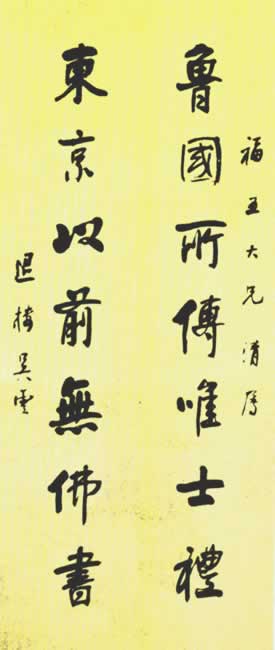 福五大兄清屬
魯國所傳唯士禮
東京以前無佛書
退樓吳雲